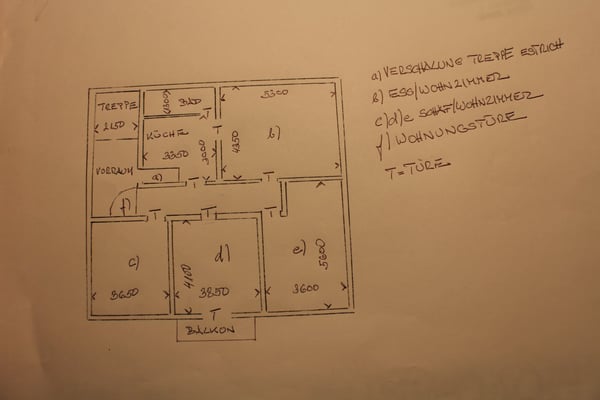 a) VERSCHALUNG TREPPE ESTRICH
b) ESS/WOHNZIMMER
c)d)e SCHAF/WOHNZIMMER
f) WOHNUNGSTÜRE
T=TÜRE
TREPPE
2150
BAD
5300
T
T
KÜCHE
3350
3000
4350
b)
VORRAUM
a)
T
T
f)
T
T
T
c)
d)
e)
4100
5600
3650
3850
3600
T
BALKON